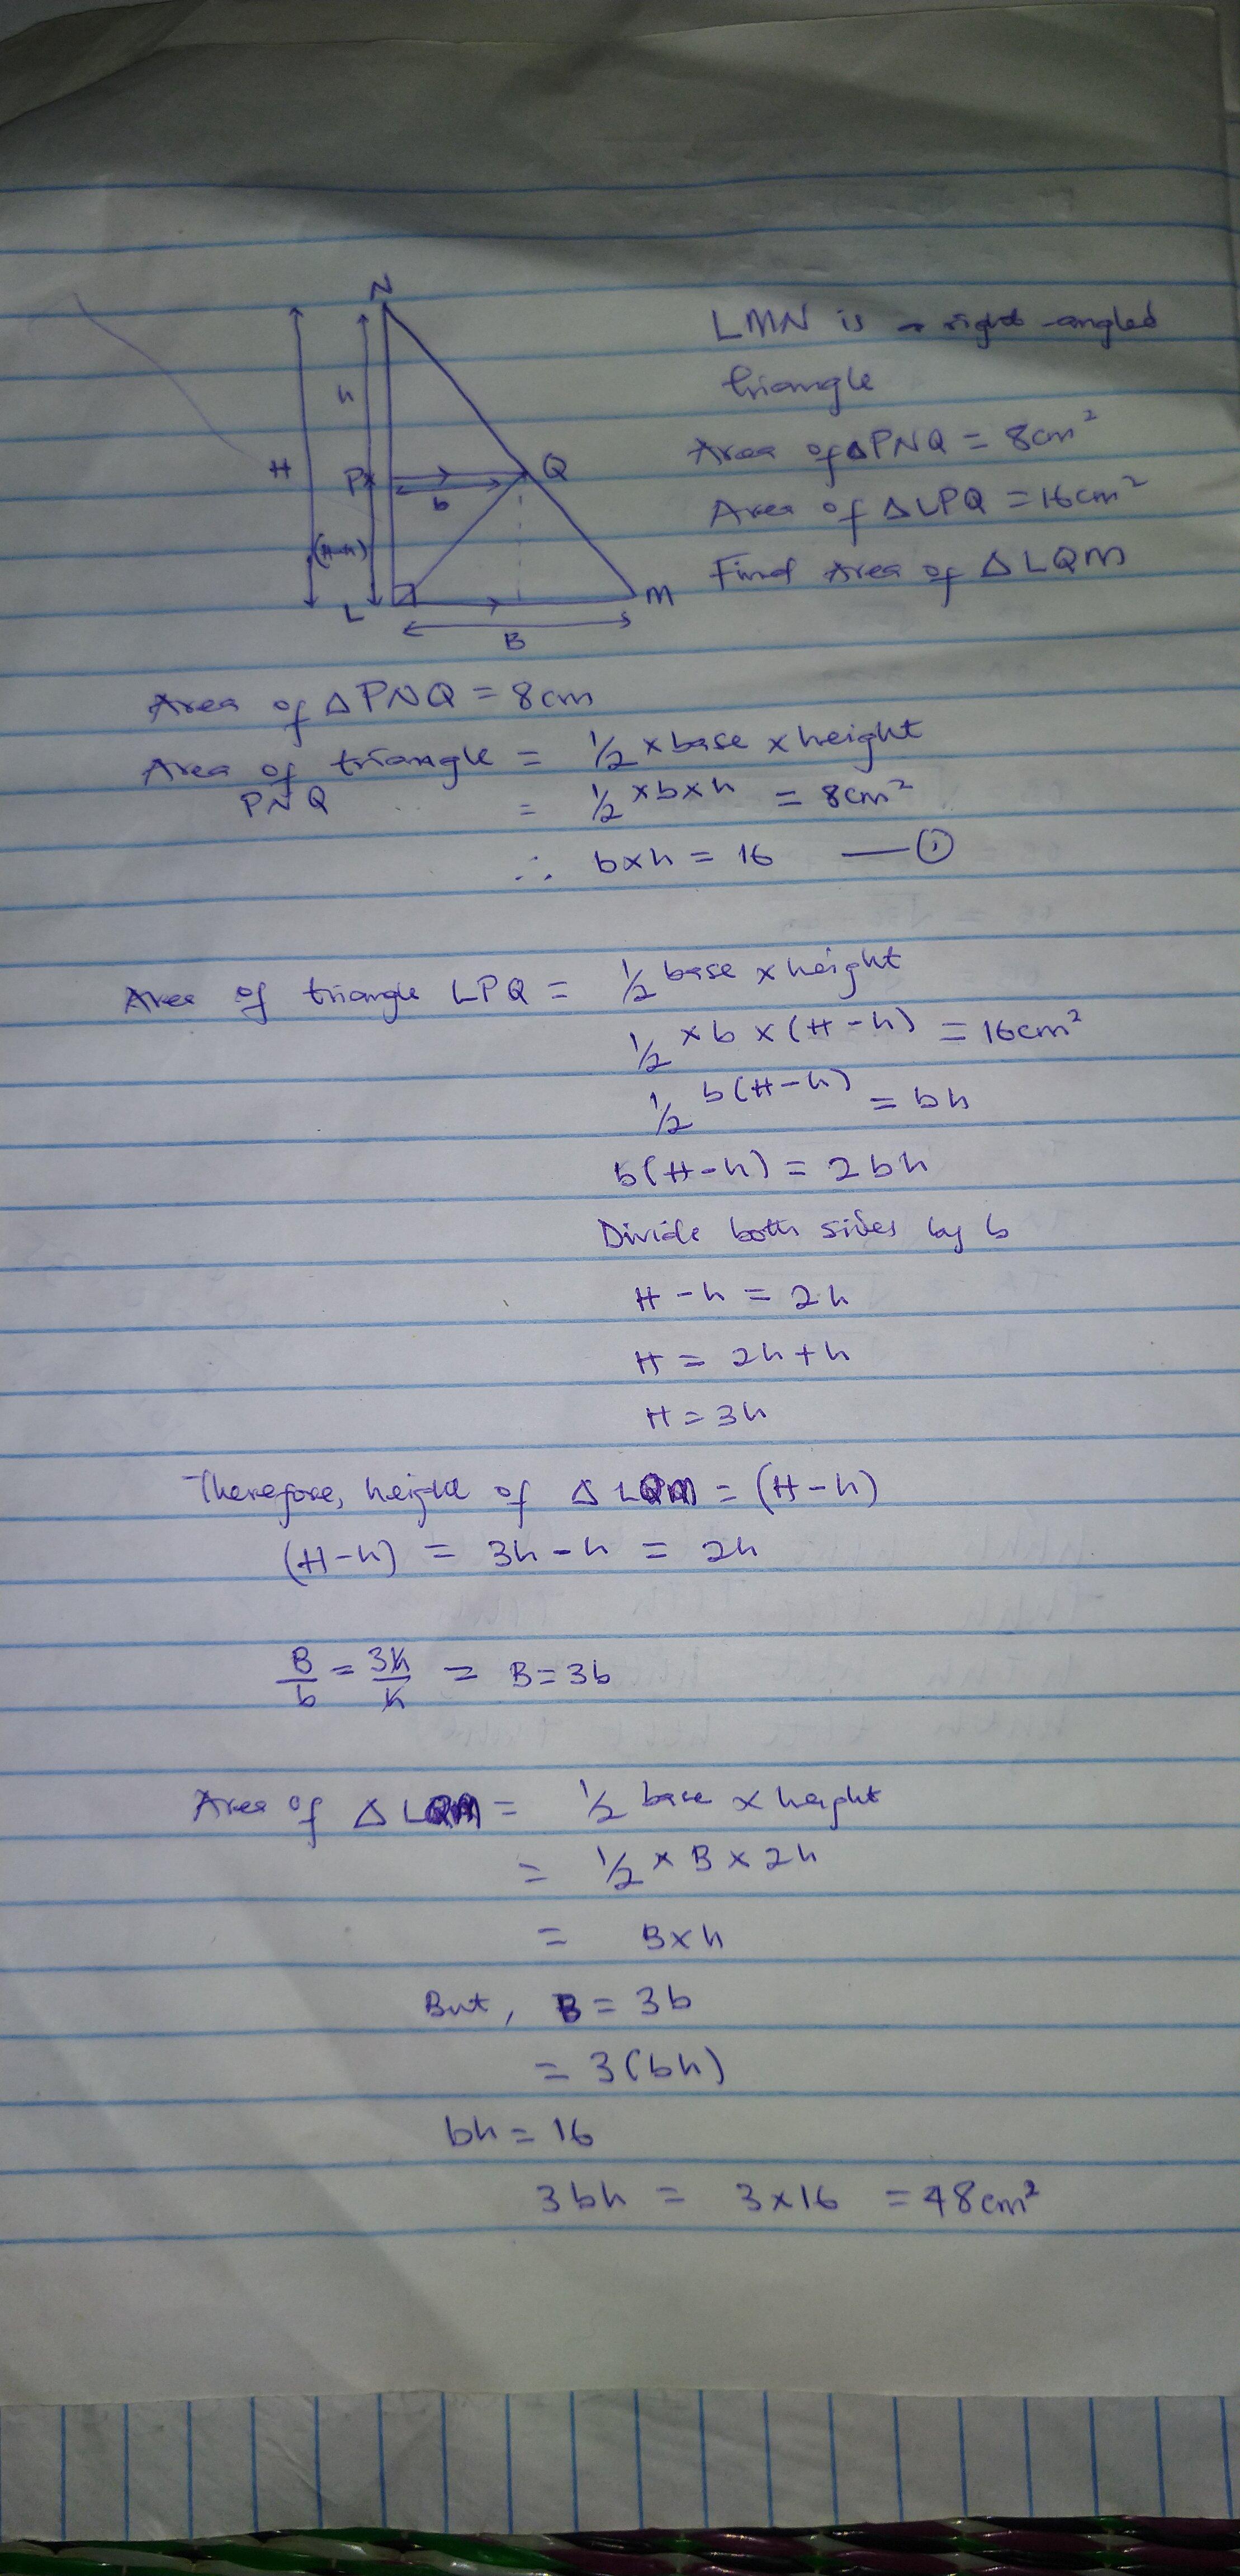 N
LMN is a right-angled
triangle
h
Area of △PNQ = 8cm²
H
P
Q
b
Area of △LPQ = 16cm²
(H-h)
Find Area of △LQM
L
M
B
Area of △PNQ = 8cm
Area of triangle = 1/2 × base × height
PNQ
= 1/2 × b × h = 8cm²
∴ b×h = 16 — ①
Area of triangle LPQ = 1/2 base × height
1/2 × b × (H-h) = 16cm²
1/2 b(H-h) = bh
b(H-h) = 2bh
Divide both sides by b
H - h = 2h
H = 2h+h
H = 3h
Therefore, height of △ LQM = (H-h)
(H-h) = 3h-h = 2h
B/b = 3h/h = B=3b
Area of △ LQM = 1/2 base × height
= 1/2 × B × 2h
= B×h
But, B = 3b
= 3(bh)
bh = 16
3bh = 3×16 = 48cm²